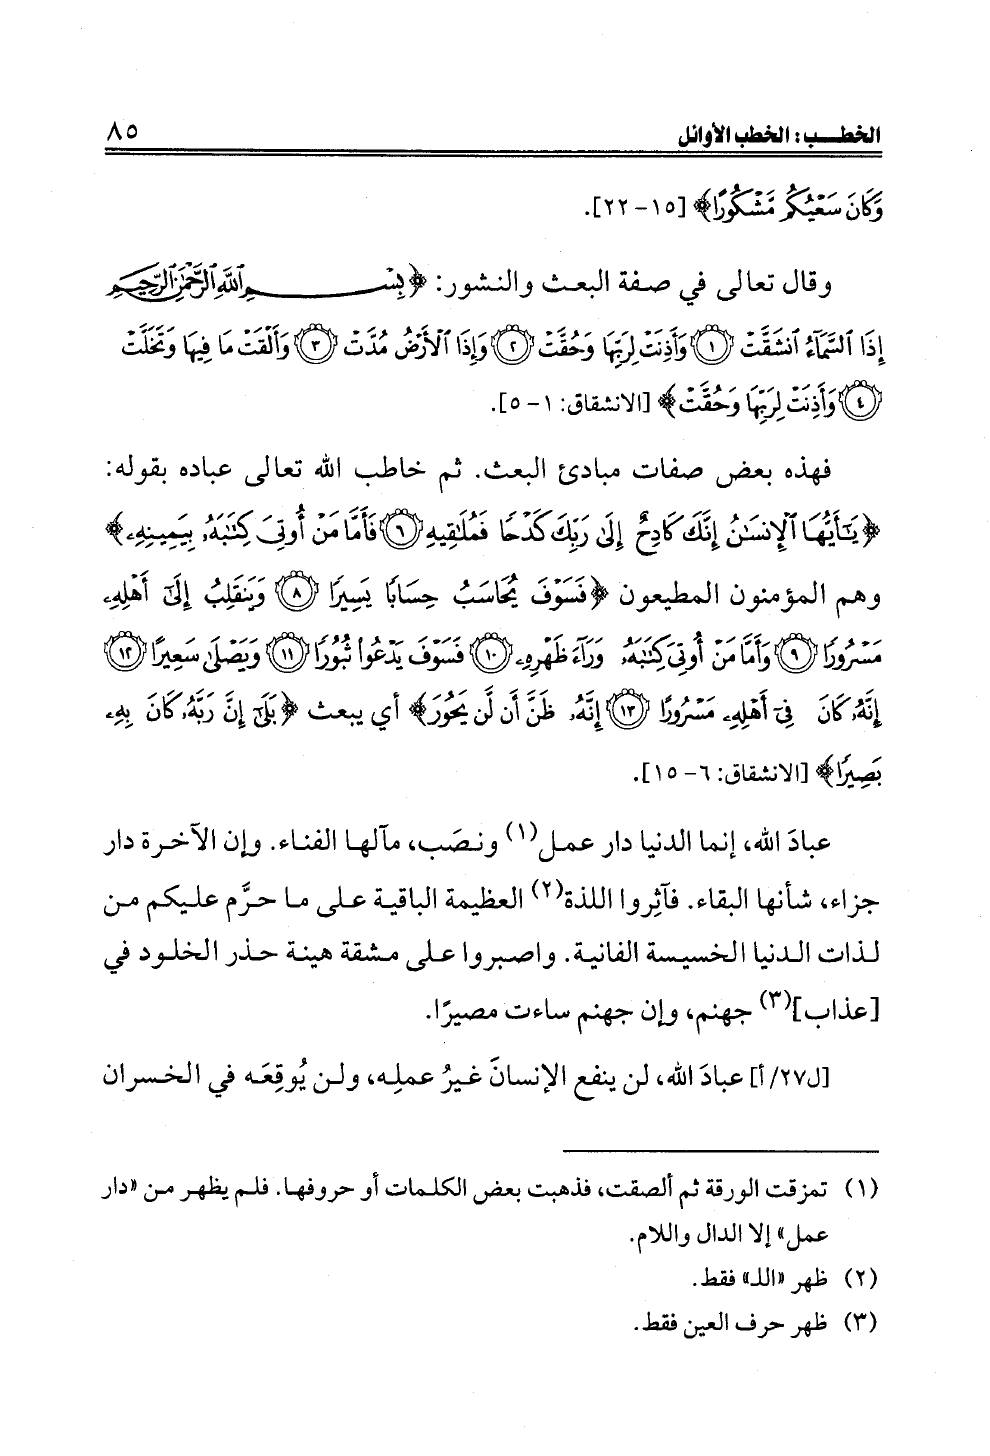 الخطـــب: الخطب الأوائل ٨٥
وَكَانَ سَعْيُكُم مَّشْكُورًا﴾ [١٥-٢٢].
وقال تعالى في صفة البعث والنشور: ﴿بِسْمِ اللَّهِ الرَّحْمَٰنِ الرَّحِيمِ
إِذَا ٱلسَّمَآءُ ٱنشَقَّتْ ۝١ وَأَذِنَتْ لِرَبِّهَا وَحُقَّتْ ۝٢ وَإِذَا ٱلْأَرْضُ مُدَّتْ ۝٣ وَأَلْقَتْ مَا فِيهَا وَتَخَلَّتْ
۝٤ وَأَذِنَتْ لِرَبِّهَا وَحُقَّتْ﴾ [الانشقاق: ١-٥].
فهذه بعض صفات مبادئ البعث. ثم خاطب الله تعالى عباده بقوله:
﴿يَٰٓأَيُّهَا ٱلْإِنسَٰنُ إِنَّكَ كَادِحٌ إِلَىٰ رَبِّكَ كَدْحًا فَمُلَٰقِيهِ ۝٦ فَأَمَّا مَنْ أُوتِىَ كِتَٰبَهُۥ بِيَمِينِهِۦ﴾
وهم المؤمنون المطيعون ﴿فَسَوْفَ يُحَاسَبُ حِسَابًا يَسِيرًا ۝٨ وَيَنقَلِبُ إِلَىٰٓ أَهْلِهِۦ
مَسْرُورًا ۝٩ وَأَمَّا مَنْ أُوتِىَ كِتَٰبَهُۥ وَرَآءَ ظَهْرِهِۦ ۝١٠ فَسَوْفَ يَدْعُوا۟ ثُبُورًا ۝١١ وَيَصْلَىٰ سَعِيرًا ۝١٢
إِنَّهُۥ كَانَ فِىٓ أَهْلِهِۦ مَسْرُورًا ۝١٣ إِنَّهُۥ ظَنَّ أَن لَّن يَحُورَ﴾ أي يبعث ﴿بَلَىٰٓ إِنَّ رَبَّهُۥ كَانَ بِهِۦ
بَصِيرًا﴾ [الانشقاق: ٦-١٥].
عبادَ الله، إنما الدنيا دار عمل(١) ونصَب، مآلها الفناء. وإن الآخرة دار
جزاء، شأنها البقاء. فآثِروا اللذة(٢) العظيمة الباقية على ما حرَّم عليكم من
لذات الدنيا الخسيسة الفانية. واصبروا على مشقة هينة حذر الخلود في
[عذاب](٣) جهنم، وإن جهنم ساءت مصيرًا.
[ل٢٧/أ] عبادَ الله، لن ينفع الإنسانَ غيرُ عملِه، ولن يُوقِعَه في الخسران
(١) تمزقت الورقة ثم ألصقت، فذهبت بعض الكلمات أو حروفها. فلم يظهر من «دار
عمل» إلا الدال واللام.
(٢) ظهر «اللـ» فقط.
(٣) ظهر حرف العين فقط.